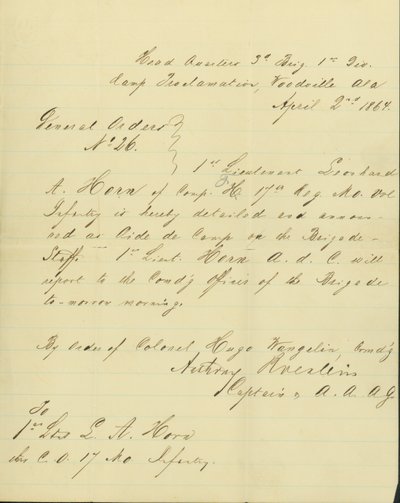 Head Quarters 3d Brig. 1st Div.
Camp Proclamation, Woodville Ala
April 2nd 1864.
General Orders
No 26.
1st Lieutenant Leonhard
A. Horn of Comp. H 17th Reg. Mo. Vol
Infantry is hereby detailed and announ-
ced as Aide de Camp on the Brigade-
Staff. 1st Lieut. Horn A. d. C. will
report to the Comd'g Officer of the Brigade
to-morrow morning.
By Order of Colonel Hugo Wangelin, Comd'g
Captain & A. A. A. G.
To
1st L. A. Horn
C. O. 17 Mo Infantry.